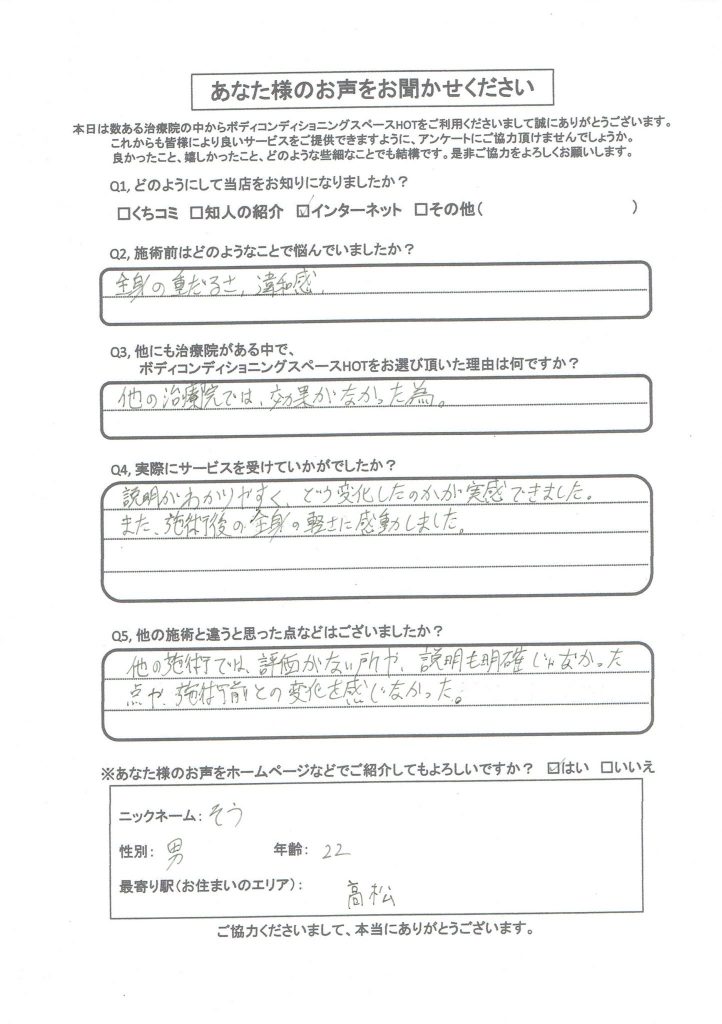 あなた様のお声をお聞かせください
本日は数ある治療院の中からボディコンディショニングスペースHOTをご利用くださいまして誠にありがとうございます。
これからも皆様により良いサービスをご提供できますように、アンケートにご協力頂けませんでしょうか。
良かったこと、嬉しかったこと、どのような些細なことでも結構です。是非ご協力をよろしくお願いします。
Q1, どのようにして当店をお知りになりましたか？
□くちコミ □知人の紹介 ☑インターネット □その他( )
Q2, 施術前はどのようなことで悩んでいましたか？
全身の重だるさ、違和感、
Q3, 他にも治療院がある中で、
ボディコンディショニングスペースHOTをお選び頂いた理由は何ですか？
他の治療院では、効果がなかった為。
Q4, 実際にサービスを受けていかがでしたか？
説明がわかりやすく、どう変化したのかが実感できました。
また、施術後の全身の軽さに感動しました。
Q5, 他の施術と違うと思った点などはございましたか？
他の施術では、評価がない所や、説明も明確じゃなかった
点や、施術前との変化を感じなかった。
※あなた様のお声をホームページなどでご紹介してもよろしいですか？ ☑はい □いいえ
ニックネーム： そう
性別： 男 年齢： 22
最寄り駅（お住まいのエリア）： 高松
ご協力くださいまして、本当にありがとうございます。